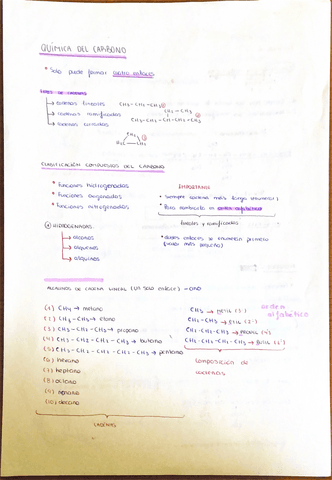 QUÍMICA DEL CARBONO
* Solo puede formar cuatro enlaces
TIPOS DE CADENAS
→ cadenas lineales CH₃-CH₂-CH₃
→ cadenas ramificadas
CH₂-CH₃
CH₃-CH₂-CH-CH₂-CH₃
→ cadenas cerradas
CLASIFICACIÓN COMPUESTOS DEL CARBONO
* Funciones hidrogenadas
* Funciones oxigenadas
* Funciones nitrogenadas
IMPORTANTE
* Siempre cadena más larga
* Para nombrarla en orden alfabético
lineales y ramificadas
HIDROGENADAS
→ alcanos
→ alquenos
→ alquinos
* dobles enlaces se numeran primero
ALCANOS DE CADENA LINEAL (UN SOLO ENLACE) -ANO
(1) CH₄ → metano
(2) CH₃-CH₃ → etano
(3) CH₃-CH₂-CH₃ → propano
(4) CH₃-CH₂-CH₂-CH₃ → butano
(5) CH₃-CH₂-CH₂-CH₂-CH₃ → pentano
(6) hexano
(7) heptano
(8) octano
(9) nonano
(10) decano
CADENAS
CH₃
CH₂-CH₃
CH₂-CH₂-CH₃
CH₂-CH₂-CH₂-CH₃
orden
alfabético
composición de